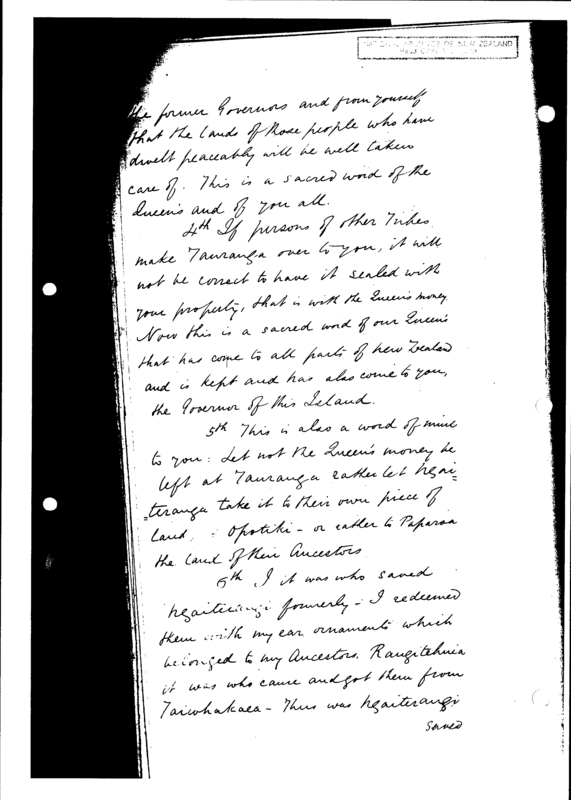 NATIONAL ARCHIVES OF NEW ZEALAND
the former Governors and from yourself
that the lands of those people who have
dwelt peaceably will be well taken
care of. This is a sacred word of the
Queen's and of you all.
4th If persons of other Tribes
make Tauranga over to you, it will
not be correct to have it sealed with
your property, that is with the Queen's money.
Now this is a sacred word of our Queen's
that has come to all parts of New Zealand
and is kept and has also come to you,
the Governor of this Island.
5th This is also a word of mine
to you: Let not the Queen's money be
left at Tauranga rather let Ngai=
=teranga take it to their own piece of
land. : Opotiki - or rather to Paparoa
the land of their Ancestors
6th I it was who saved
Ngaiterangi formerly - I redeemed
them with my ear ornaments which
belonged to my Ancestors. Rangitehuia
it was who came and got them from
Taiwhakaea - Thus was Ngaiterangi
saved